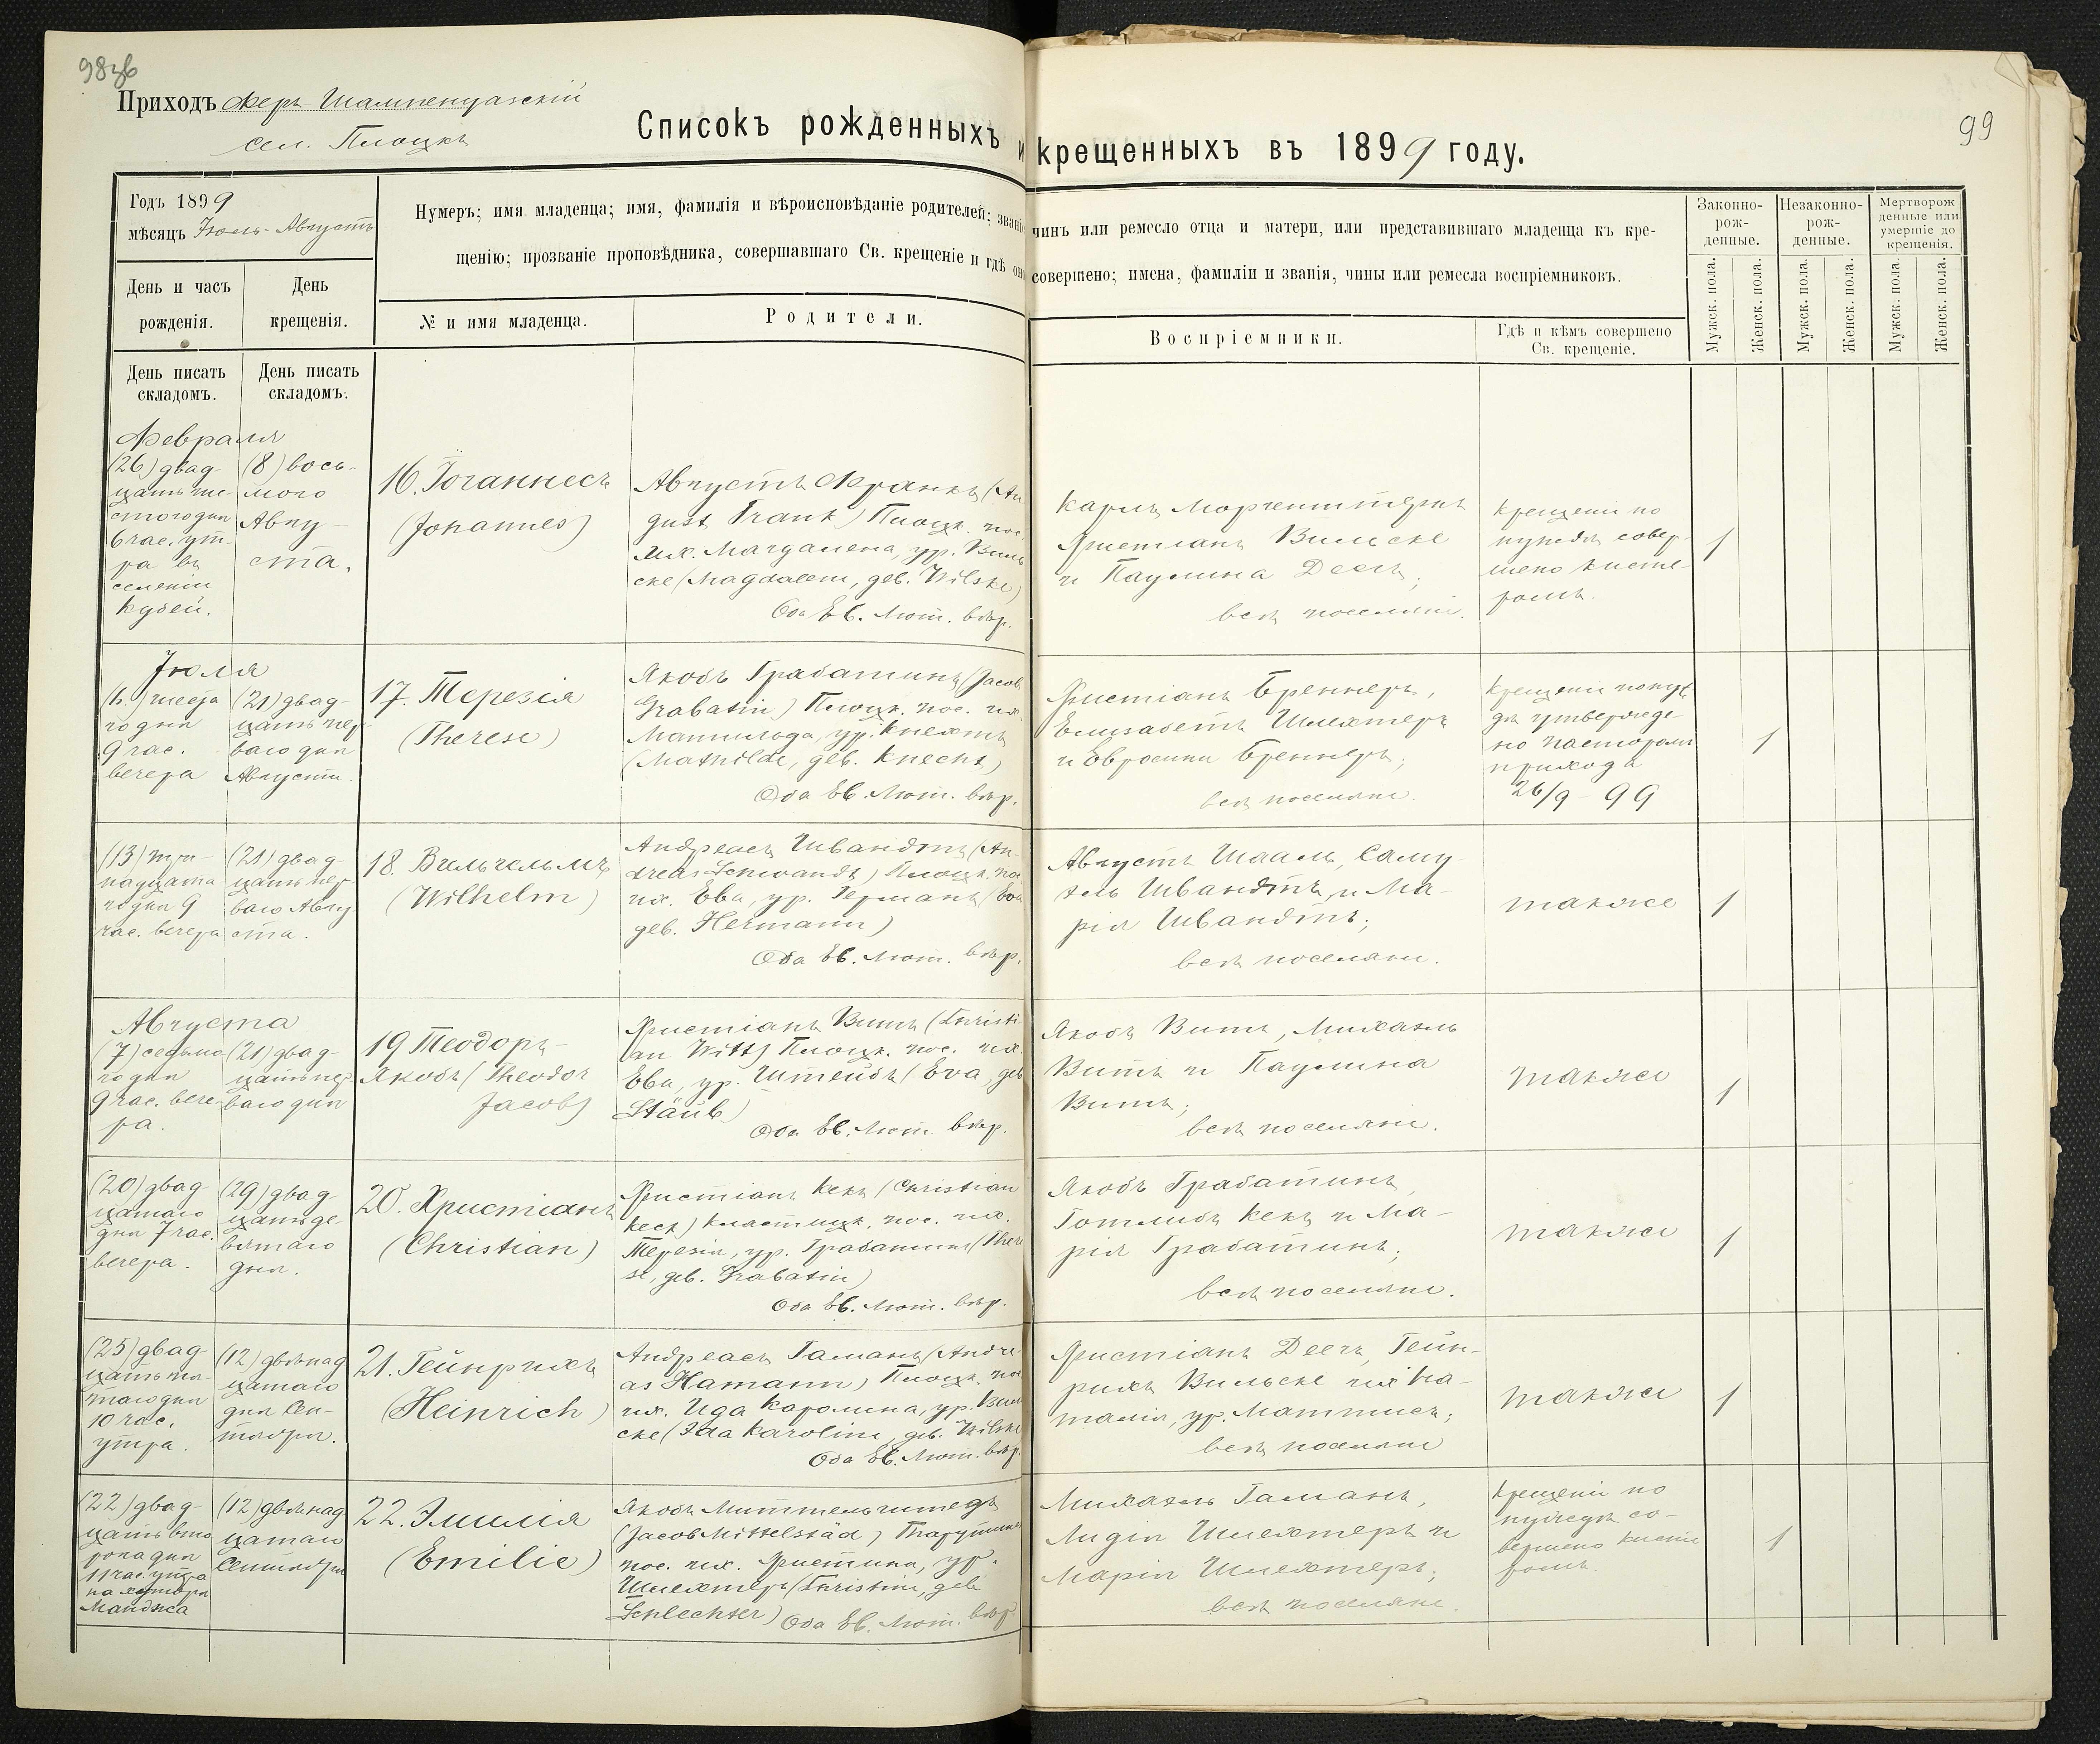 98
Приходъ Феръ-Шампенуазскій
сел. Плоцкъ
99
Списокъ рожденныхъ и крещенныхъ въ 1899 году.
Годъ 1899
мѣсяцъ Іюль-Августъ
Нумеръ; имя младенца; имя, фамилія и вѣроисповѣданіе родителей; званіе
чинъ или ремесло отца и матери, или представившаго младенца къ кре-
щенію; прозваніе проповѣдника, совершавшаго Св. крещеніе и гдѣ оно
совершено; имена, фамиліи и званія, чины или ремесла воспріемниковъ.
Законно-
рож-
денные.
Незаконно-
рож-
денные.
Мертворож
денные или
умершіе до
крещенія.
День и часъ
рожденія.
День
крещенія.
№ и имя младенца.
Родители.
Воспріемники.
Гдѣ и кѣмъ совершено
Св. крещеніе.
Мужск. пола.
Женск. пола.
Мужск. пола.
Женск. пола.
Мужск. пола.
Женск. пола.
День писать
складомъ.
День писать
складомъ.
Февраля
(26) двад-
цать ше-
стого дня
6 час. ут-
ра въ
селеніи
Кубей.
(8) вось-
мого
Авгу-
ста.
16. Іоганнесъ
(Johannes)
Августъ Франкъ (Au
gust Frank) Плоцк. пос.
их. Магдалена, ур. Виль
ске (Magdalena, geb. Wilske)
Оба Ев. Лют. вѣр.
Карлъ Моргенштернъ
Христіанъ Вильске
и Паулина Деегъ;
всѣ поселяне.
Крещеніе по
нуждѣ совер-
шено кисте-
ромъ.
1
Іюля
(6.) шеста
го дня
9 час.
вечера
(21) двад-
цать пер-
ваго дня
Августа.
17. Терезія
(Therese)
Якобъ Грабатинъ (Jacob
Grabatin) Плоцк. пос. их.
Матильда, ур. Кнехтъ
(Mathilde, geb. Knecht)
Оба Ев. Лют. вѣр.
Христіанъ Бреннеръ,
Елизабетъ Шлехтеръ
и Евросина Бреннеръ;
всѣ поселяне.
Крещеніе по нуж
дѣ утвержде
но пасторомъ
прихода
26/9-99
1
(13) три-
надцата
го дня 9
час. вечера
(21) двад-
цать пер-
ваго Авгу
ста.
18. Вильгельмъ
(Wilhelm)
Андреасъ Швандтъ (An-
dreas Schwandt) Плоцк. по
их. Ева, ур. Германъ (Eva
geb. Hermann)
Оба Ев. Лют. вѣр.
Августъ Шааль, Саму
эль Швандтъ, и Ма-
рія Швандтъ;
всѣ поселяне.
также
1
Августа
(7) седьма
го дня
9 час. вече-
ра.
(21) двад-
цать пер
ваго дня
19 Теодоръ-
Якобъ (Theodor
Jacob)
Христіанъ Витъ (Christi-
an Witt) Плоцк. пос. их.
Ева, ур. Штейбъ (Eva, geb
Stäub)
Оба Ев. Лют. вѣр.
Якобъ Витъ, Михаэль
Витъ и Паулина
Витъ;
всѣ поселяне.
также
1
(20) двад-
цатаго
дня 7 час.
вечера.
(29) двад-
цать де-
вятаго
дня.
20. Христіанъ
(Christian)
Христіанъ Кекъ (Christian
Keck) Кластицк. пос. их.
Терезія, ур. Грабатинъ (There
se, geb. Grabatin)
Оба Ев. Лют. вѣр.
Якобъ Грабатинъ,
Готлибъ Кекъ и Ма-
рія Грабатинъ;
всѣ поселяне.
также
1
(25) двад-
цать пя-
таго дня
10 час.
утра.
(12) двѣнад
цатаго
дня Сен-
тября.
21. Гейнрихъ
(Heinrich)
Андреасъ Гаманъ (Andre-
as Hamann) Плоцк. пос
их. Ида Каролина, ур. Виль
ске (Ida Karoline, geb. Wilske
Оба Ев. Лют. вѣр.
Христіанъ Деегъ, Гейн-
рихъ Вильске их На-
талія, ур. Маттисъ;
всѣ поселяне
также
1
(22) двад-
цать вто
рога дня
11 час. утра
на хуторѣ
Манджа
(12) двѣнад
цатаго
Сентября
22. Эмилія
(Emilie)
Якобъ Миттельштедъ
(Jacob Mittelstäd) Тарутин
пос. их. Христина, ур.
Шлехтеръ (Christine, geb
Schlechter) Оба Ев. Лют. вѣр.
Михаэль Гаманъ,
Лидія Шлехтеръ и
Марія Шлехтеръ;
всѣ поселяне.
Крещеніе по
нуждѣ со-
вершено кисте
ромъ.
1